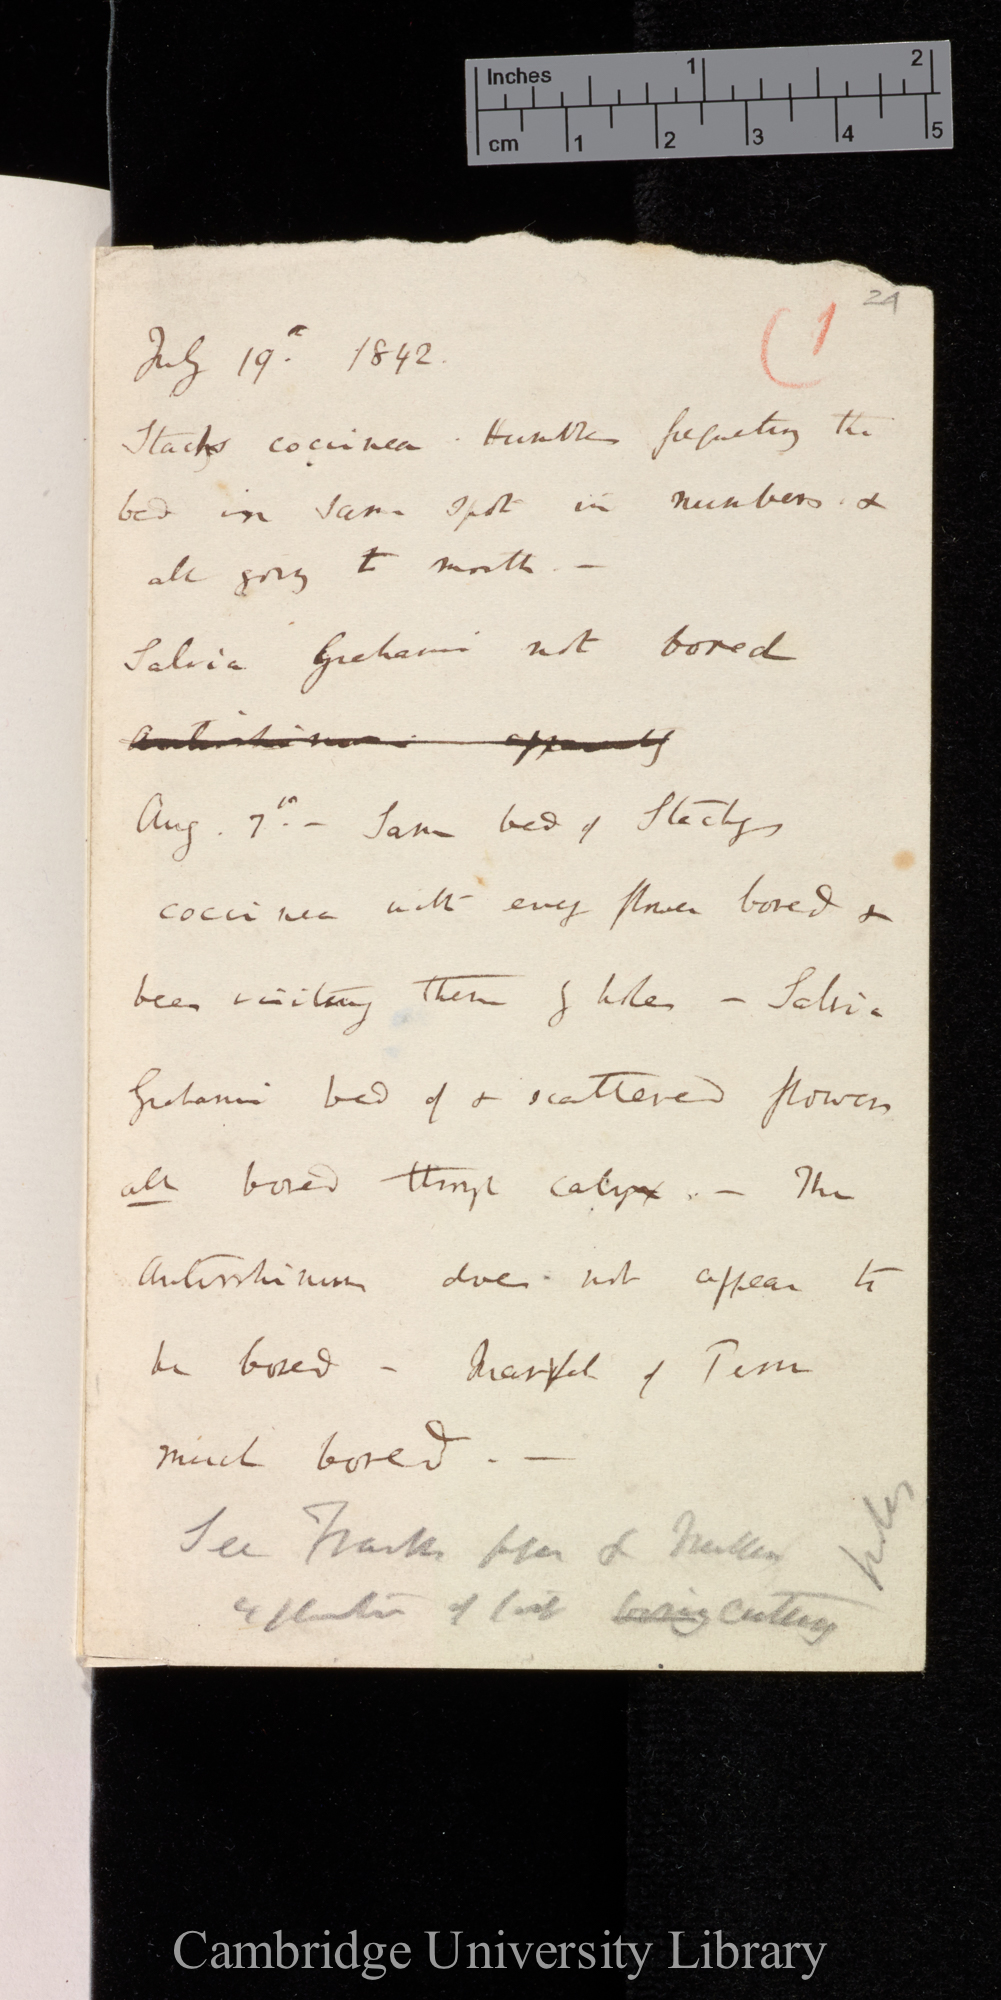 Inches 1 2
cm 1 2 3 4 5
24
(1
July 19th. 1842.
Stachys coccinea. Humbles frequenting the
bed in same spot in numbers. &
all going to mouth. —
Salvia Grahami not bored
Antirrhinum apparently
Aug. 7th. — Same bed of Stachys
coccinea with every flower bored &
bees visiting them by holes — Salvia
Grahami bed of & scattered flowers
all bored through calyx. — The
Antirrhinum does not appear to
be bored — Marvel of Peru
much bored. —
See
of boring cutting
holes
Cambridge University Library